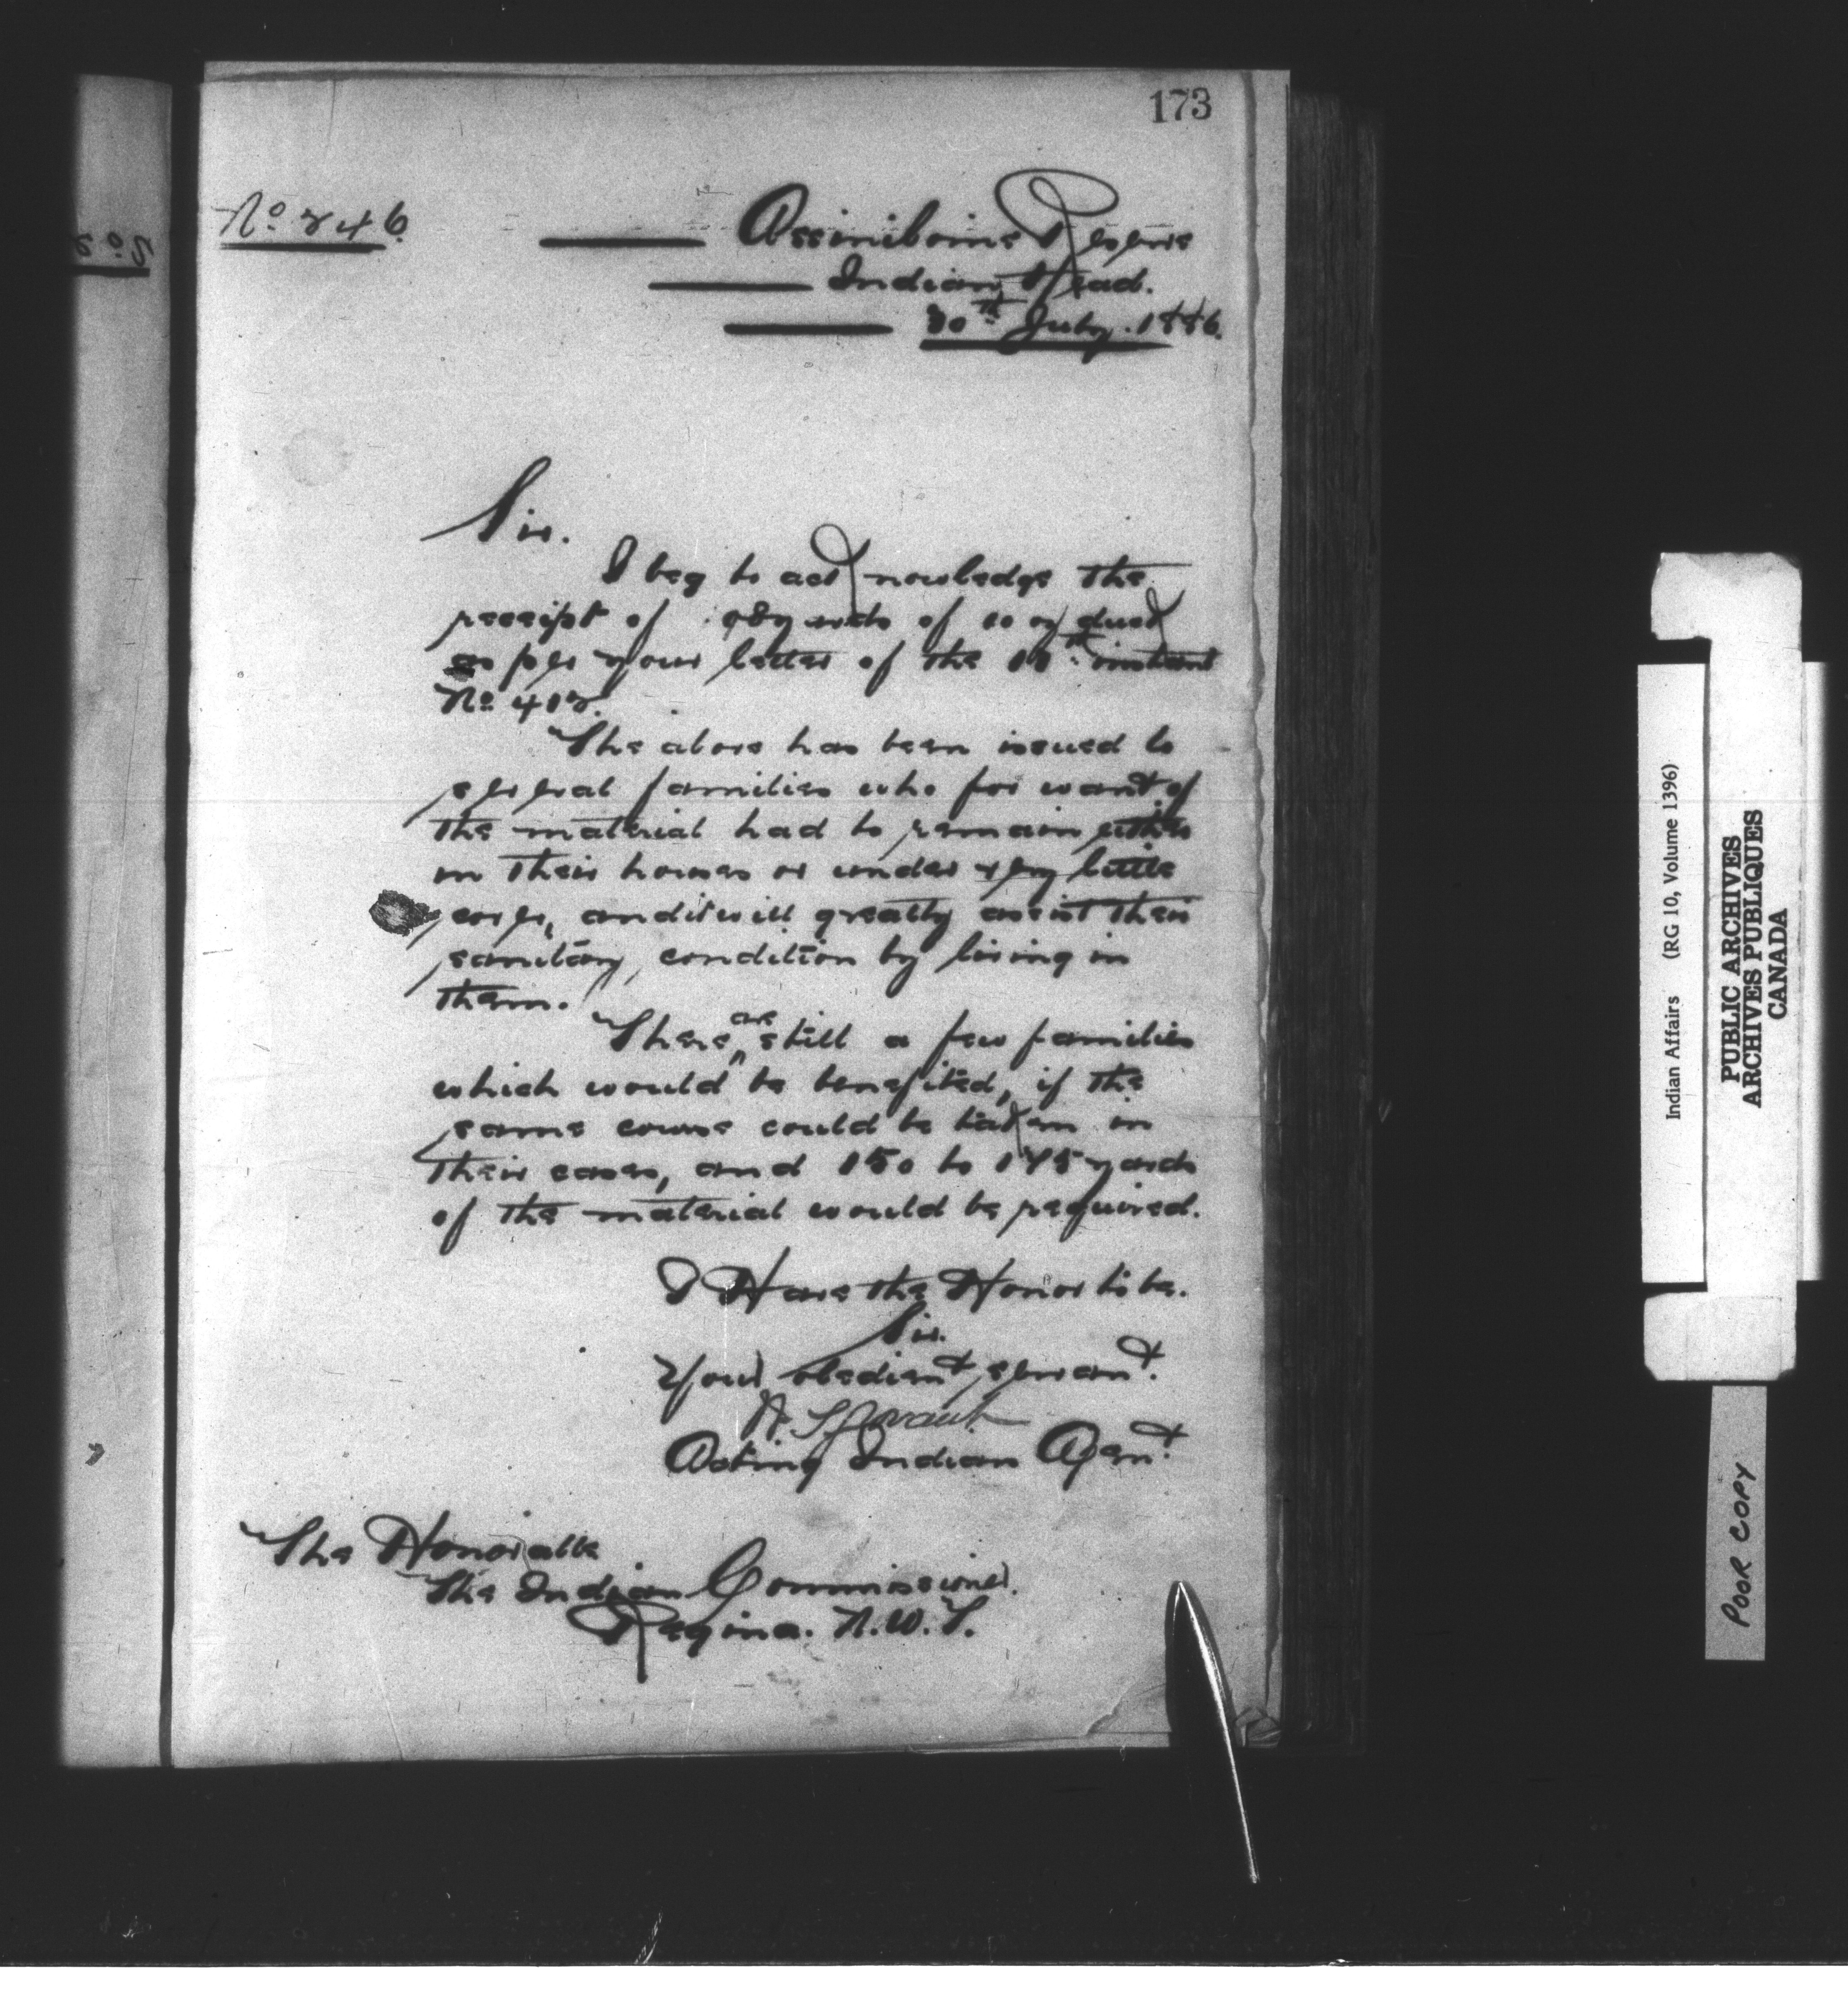 173
No 246.
Assiniboine Reserve
Indian Head.
30th July. 1886.
Sir.
I beg to acknowledge the
receipt of yards of 10 oz duck
as per your letter of the instant
No
The above has been issued to
several families who for want of
the material had to remain either
in their houses or under very little
cover, and it will greatly assist their
sanitary condition by living in
them.
There are still a few families
which would be benefited, if the
same course could be taken in
their cases, and 150 to 175 yards
of the material would be required.
I Have the Honor to be.
Sir.
Your obedient servant.
Acting Indian Agent
The Honorable
The Indian Commissioner.
Regina. N.W.T.
Indian Affairs (RG 10, Volume 1396)
PUBLIC ARCHIVES
ARCHIVES PUBLIQUES
CANADA
POOR COPY